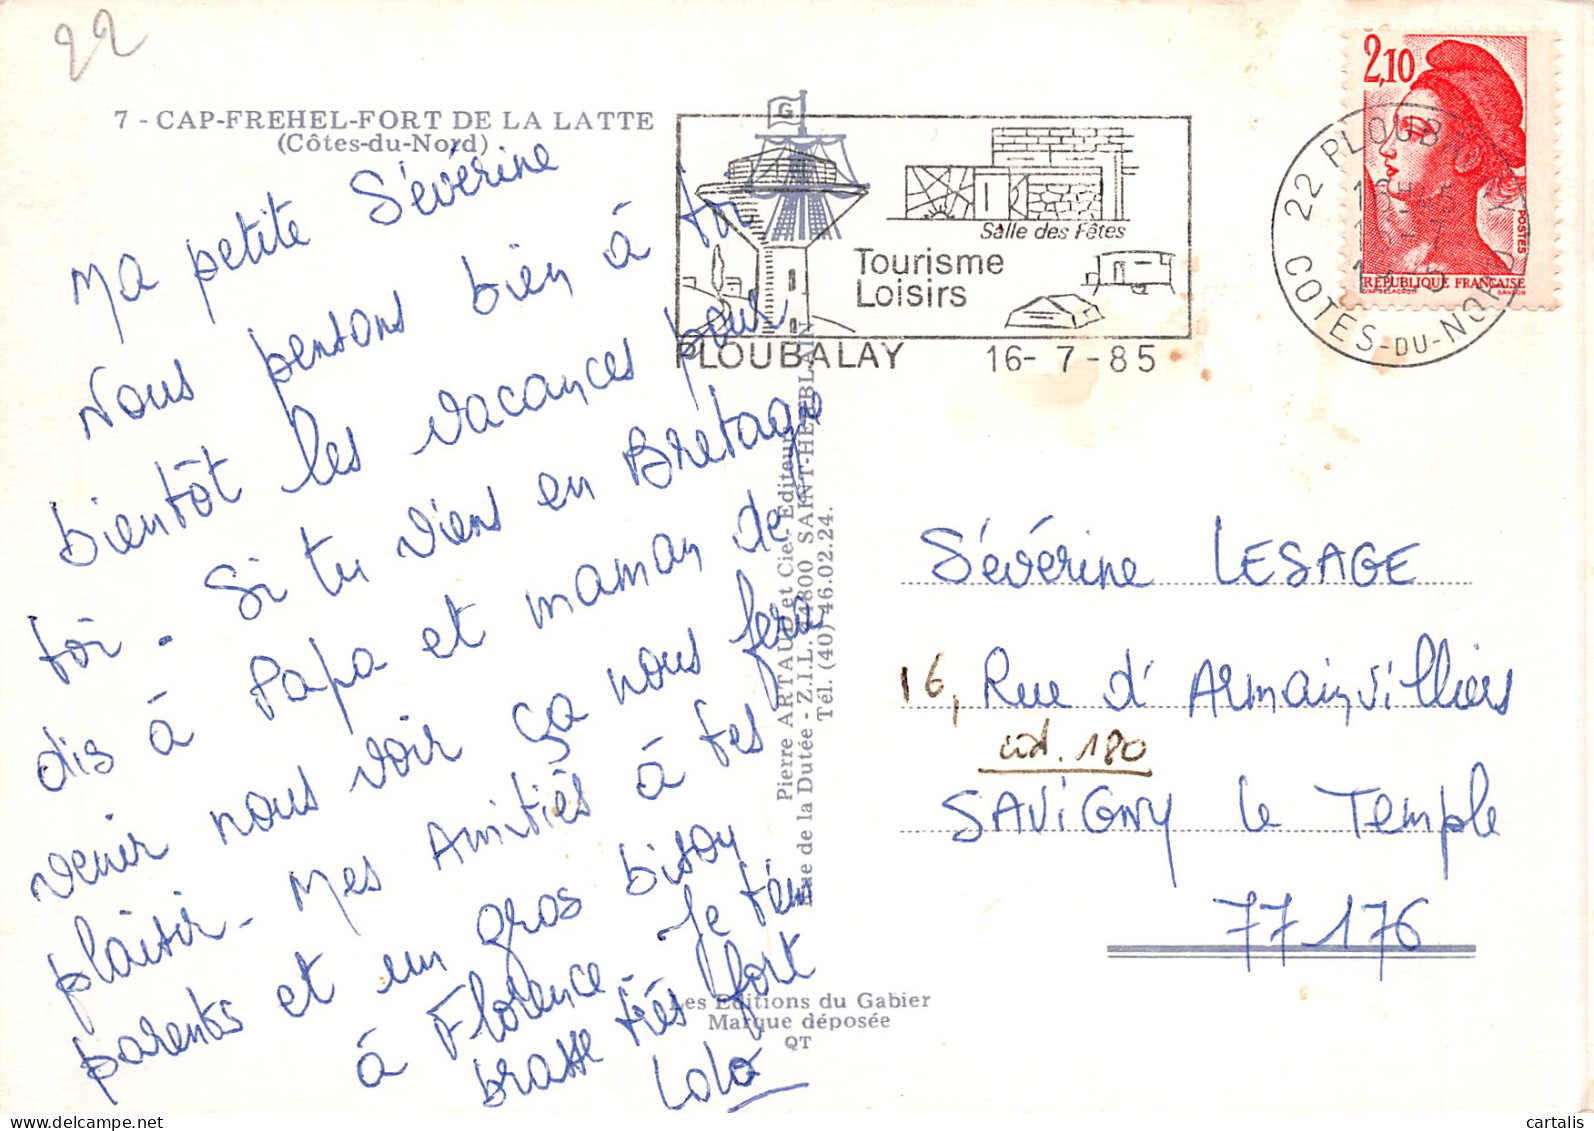 22
7 - CAP-FREHEL-FORT DE LA LATTE
(Côtes-du-Nord)
Ma petite Sévérine
Nous pensons bien à toi
bientôt les vacances pour
toi - Si tu viens en Bretagne
dis à Papa et maman de
venir nous voir ça nous fera
plaisir - Mes Amitiés à tes
parents et un gros bisou
à Florence. Je t'em
brasse très fort
Lolo
G
Salle des Fêtes
Tourisme
Loisirs
PLOUBALAY 16-7-85
2,10
POSTES
REPUBLIQUE FRANÇAISE
22 PLOUBALAY
16H45
16-7
1985
COTES-DU-NORD
Pierre ARTAUD et Cie - Editeurs
Rue de la Dutée - Z.I.L. 44800 SAINT-HERBLAIN
Tél. (40) 46.02.24.
Les Editions du Gabier
Marque déposée
QT
Sévérine LESAGE
16, Rue d'Armainvilliers
cid. 180
SAVIGNY le Temple
77176
cartalis